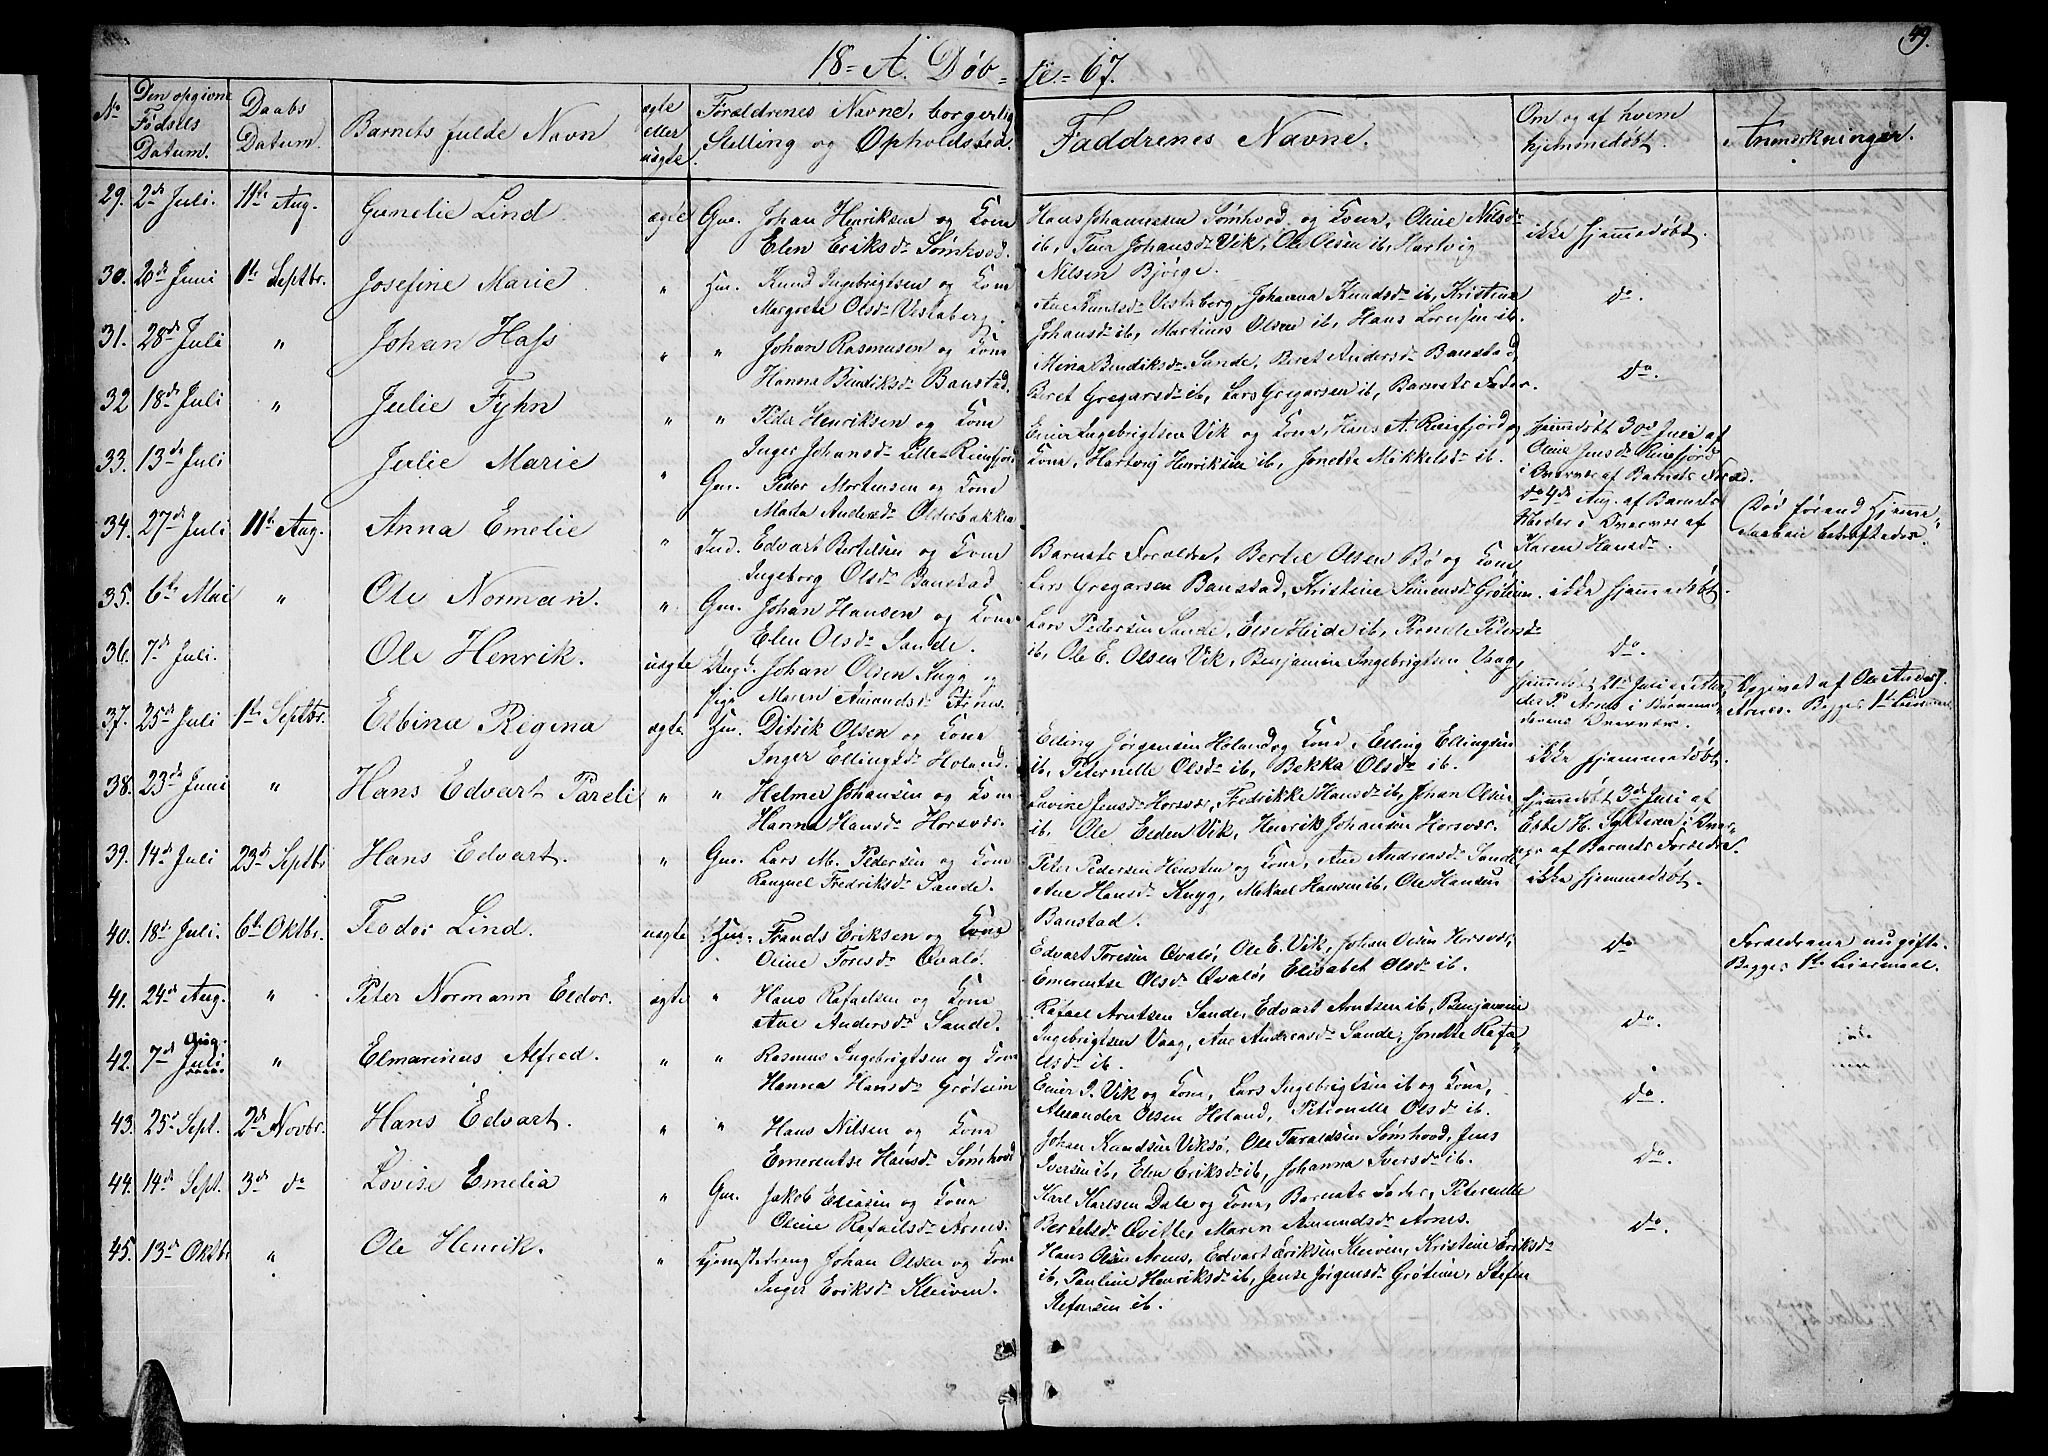 49.
18- A. Døb- te- 67.
No
Den opgivne Fødsels Datum.
Daabs Datum.
Barnets fulde Navn
ægte eller uægte
Forældrenes Navne, borgerlig Stilling og Opholdssted.
Faddrenes Navne.
Om og af hvem hjemmedøbt.
Anmærkninger.
29. 2de Juli. 11te Aug. Gunelie Lind. ægte Gm. Johan Henriksen og Kone
Elen Eriksdr Sømhovd.
Hans Johannessen Sømhovd og Kone, Oline Nilsdr
ib, Johansdr Vik, Ole Olsen ib, Hartvig
Nilsen Bjørge.
ikke hjemmedøbt.
30. 26de Juni 1ste Septbr. Josefine Marie. " Hm. Knud Ingebrigtsen og Kone
Margrete Olsdr Vistaberg.
Ane Knudsdr Vistaberg, Johanna Knudsdr ib, Kristine
Johansdr ib, Martines Olsen ib, Hans Lorensen ib.
do.
31. 28de Juli " Johan Hass " " Johan Rasmusen og Kone
Hanna Bendiksdr Banstad.
Mina Bendiksdr Sande, Beret Andersdr Banstad,
Beret Gregarsdr ib, Lars Gregarsen ib, Barnets Fader.
do.
32 18de Juli " Julie Fyhn " " Peder Henriksen og Kone
Inger Johansdr Lille-Riinfjord
Einer Ingebrigtsen Vik og Kone, Hans A. Riinfjord og
Kone, Hartvig Henriksen ib, Jonetta Mikkelsdr ib.
Hjemmedøbt 30te Juli af
Oline Jensdr Riinfjord
i Overvær af Barnets Foræld.
33. 13de Juli Julie Marie " Gm. Peder Mortensen og Kone
Marta Andersdr Olderbakken
do 4de Aug. af Barnets
Moder i Overvær af
Karen Hansdr.
Død førend Hjemme-
daaben bekræftedes.
34. 27de Juli 11te Aug. Anna Emelie " Ind. Edvart Bertelsen og Kone
Ingeborg Olsdr Banstad
Barnets Forældre, Bertil Olsen Bø og Kone
Lars Gregarsen Banstad, Kristine Simensdr Grøtium.
ikke hjemmedøbt.
35. 6te Mai " Ole Norman. " Gm. Johan Hansen og Kone
Elen Olsdr Sande.
Lars Pedersen Sande, Else Heide ib, Pernille Petersdr
ib, Ole E. Olsen Vik, Benjamin Ingebrigtsen Vaag,
do.
36. 7de Juli. Ole Henrik. uægte Ungk. Johan Olsen Knyg og
Pige Maren Amundsdr Arnes.
hjemmedøbt 21de Juli af
P. Arnes i
Overvær.
Opgivet af Ole
Arnes. Begges 1ste Leiermaal.
37. 25de Juli 1ste Septbr. Elbina Regina ægte Hm. Ditrik Olsen og Kone
Inger Ellingsdr Holand.
Elling Jørgensen Holand og Kone, Elling Ellingsen
ib, Peternelle Olsdr ib, Bekka Olsdr ib.
ikke hjemmedøbt.
38. 23de Juni " Hans Edvart Pareli " " Helmer Johansen og Kone
Hanna Hansdr Horsvær.
Lovine Jensdr Horsvær, Fredrikke Hansdr ib, Johan Olsen
ib, Ole Elden Vik, Henrik Johansen Horsvær.
hjemmedøbt 3de Juli af
Ebbe H. i Over-
vær af Barnets Forældre.
39. 14de Juli 23de Septbr Hans Edvart. " Gm. Lars M. Pedersen og Kone
Ranguel Fredriksdr Sande.
Peter Pedersen og Kone, Ane Andreasdr Sande,
Ane Hansdr Knyg, Mekael Hansen ib, Ole Hansen
Banstad.
ikke hjemmedøbt.
40. 18de Juli. 6te Oktbr. Teodor Lind. uægte Hm. Frands Eriksen og Kone
Oline Toresdr Qvalø.
Edvart Toresen Qvalø, Ole E. Vik, Johan Olsen Horsvær,
Emerentse Olsdr Qvalø, Elisabet Olsdr ib.
do
Forældrene nu gifte.
Begges 1ste Leiermaal.
41. 24de Aug. " Peter Normann Eldor. ægte " Hans Rafaelsen og Kone
Ane Andersdr Sande.
Rafael Arntsen Sande, Edvart Arntsen ib, Benjamin
Ingebrigtsen Vaag, Ane Andreasdr Sande, Jonette Rafa-
elsdr ib.
do.
42. 7de Juli Aug. " Elmarinus Alfred. " " Rasmus Ingebrigtsen og Kone
Hanna Hansdr Grøtium
Einer I. Vik og Kone, Lars Ingebrigtsen ib og Kone,
Alexander Olsen Holand, Petronelle Olsdr ib.
do.
43. 25de Sept. 2de Novbr. Hans Edvart. " " Hans Nilsen og Kone
Emerentse Hansdr Sømhovd
Johan Knudsen Viksø, Ole Taraldsen Sømhovd, Jens
Iversen ib, Elen Eriksdr ib, Johanna Iversdr ib.
do.
44. 14de Sept. 3de do Lovise Emelia " Gm. Jakob Eliasen og Kone
Oline Rafaelsdr Arnes.
Karl Karlsen Dale og Kone, Barnets Fader, Peternelle
Bertelsdr Qvitle, Maren Amundsdr Arnes.
do.
45. 13de Oktbr " Ole Henrik. " Tjenestedreng Johan Olsen og Kone
Inger Eriksdr Kleiven.
Hans Olsen Arnes, Edvart Eriksen Kleiven, Kristine Eriksdr
ib, Pauline Henriksdr ib, Jense Jørgensdr Grøtium, Stefen
Stefensen ib.